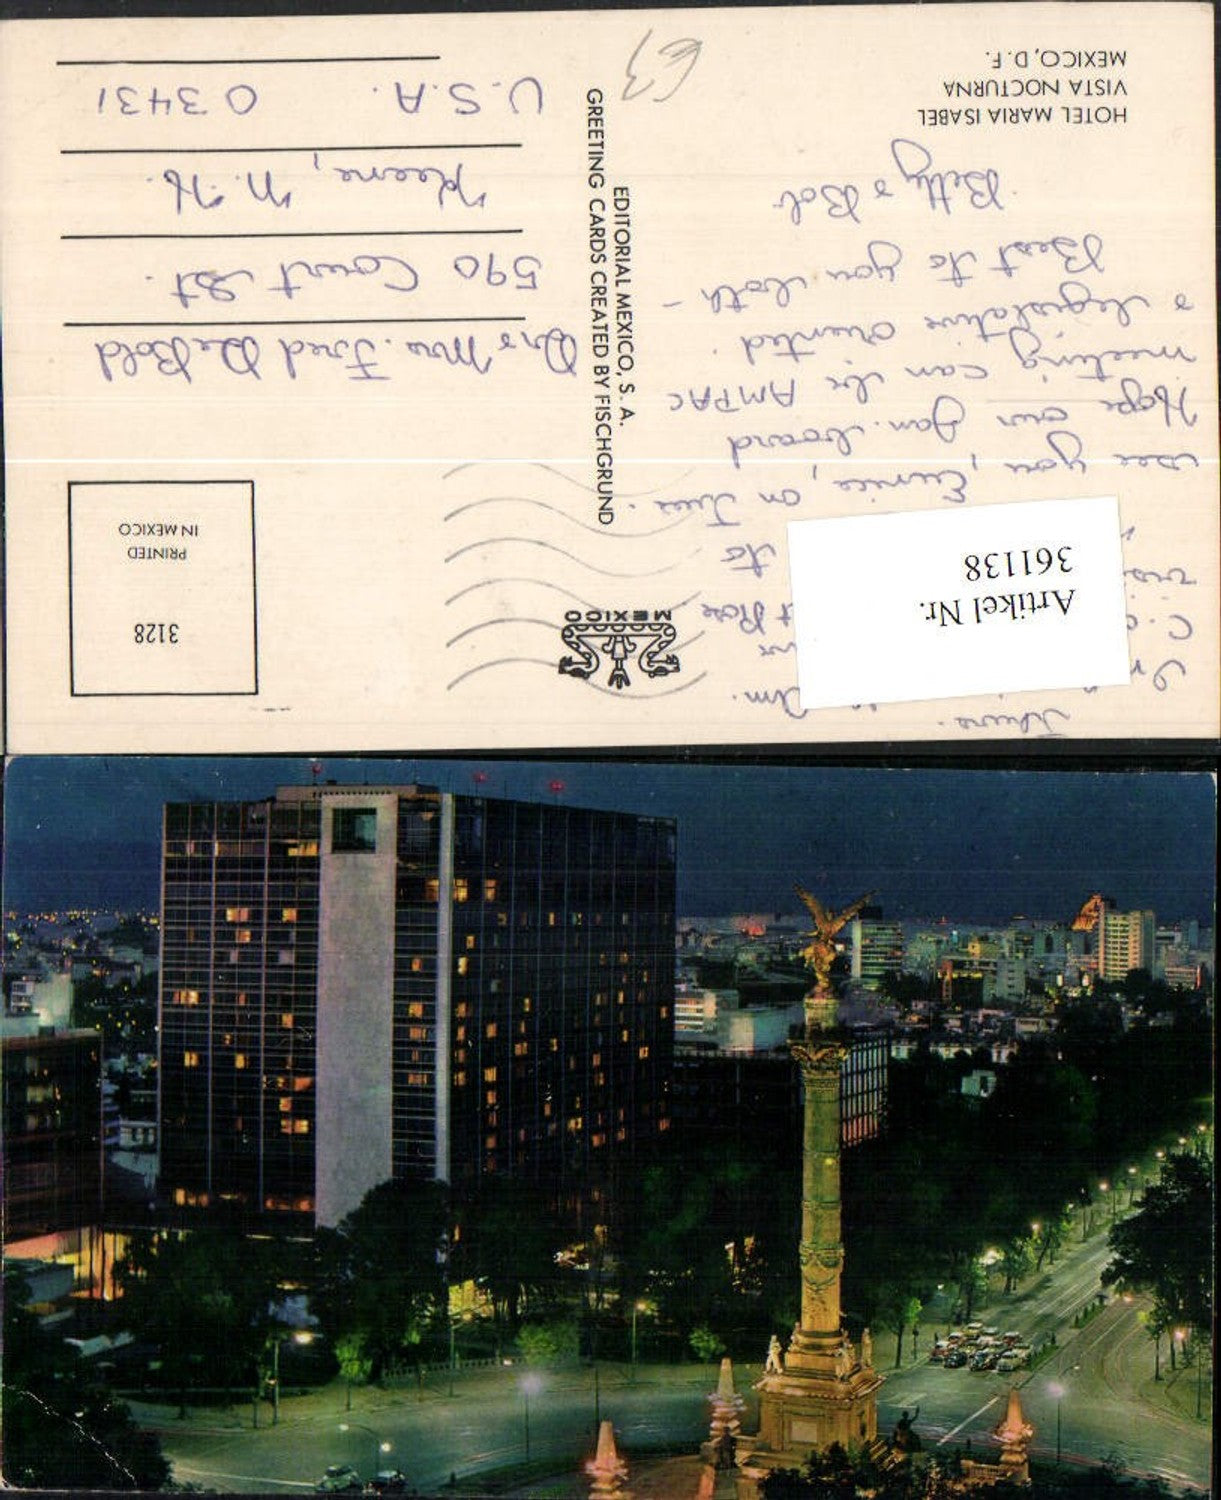 HOTEL MARIA ISABEL
VISTA NOCTURNA
MEXICO, D. F.
E3
Artikel Nr.
361138
see you, Eunice, on Tues.
Hope our Jan. board
meeting can be AMPAC
& legislative oriented.
Best to you both -
Betty & Bob
MEXICO
EDITORIAL MEXICO, S. A.
GREETING CARDS CREATED BY FISCHGRUND
3128
PRINTED
IN MEXICO
Dr & Mrs. Fred DeBold
590 Court St.
Keene, N.H.
U.S.A. 03431